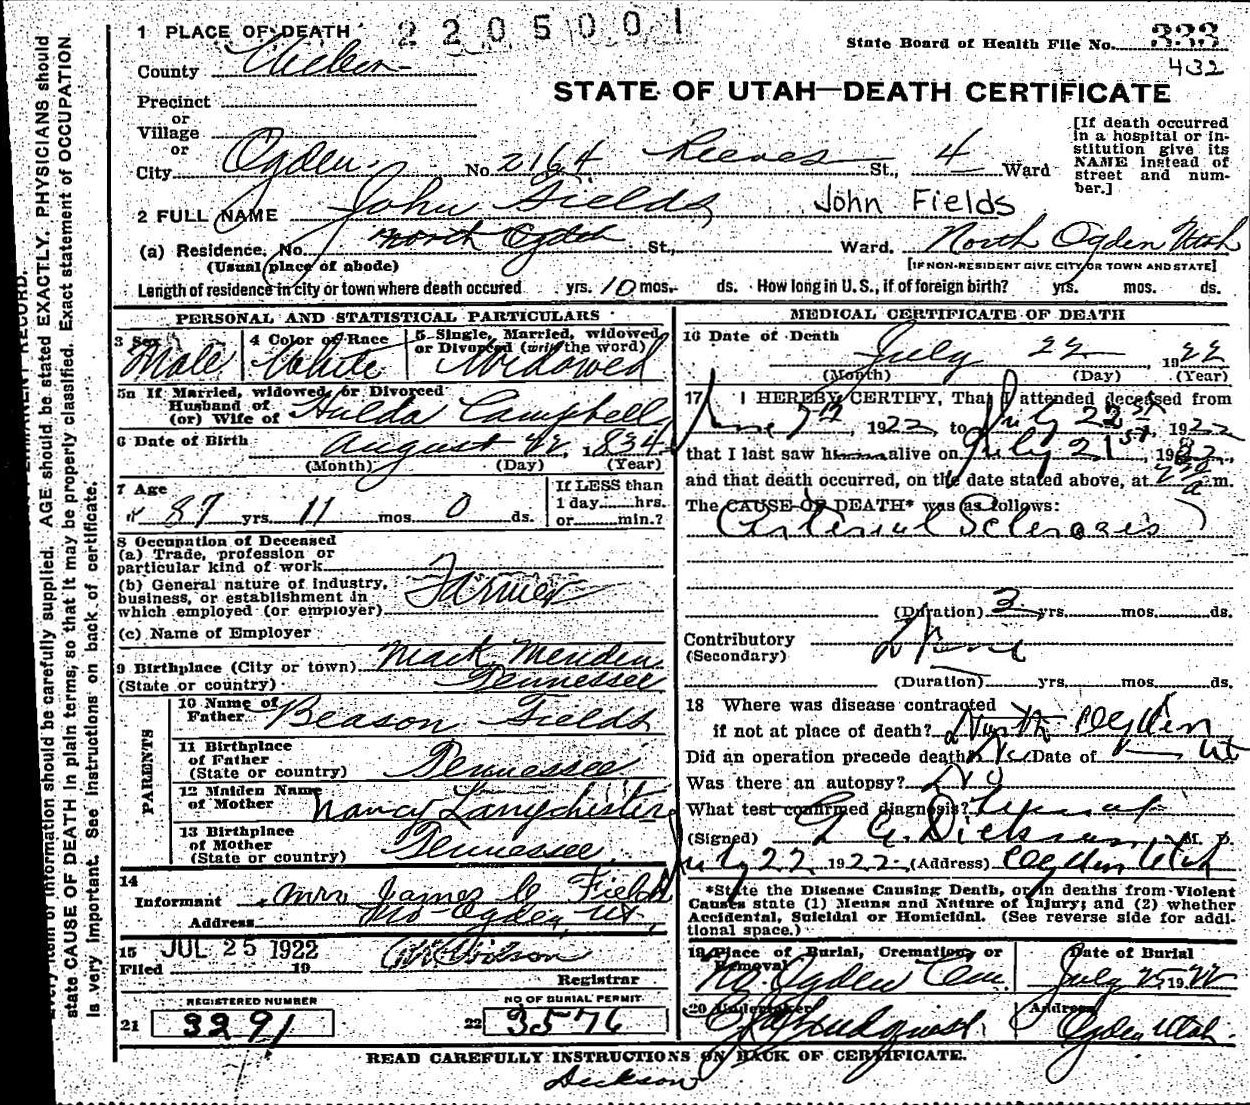 1 PLACE OF DEATH 2205001
State Board of Health File No. 333
432
County Weber
STATE OF UTAH—DEATH CERTIFICATE
Precinct
or
Village
or
City Ogden. No. 2164 Reeves St., 4 Ward
[If death occurred in a hospital or institution give its NAME instead of street and number.]
2 FULL NAME John Fields John Fields
(a) Residence. No. North Ogden St., Ward. North Ogden Utah
(Usual place of abode) [IF NON-RESIDENT GIVE CITY OR TOWN AND STATE]
Length of residence in city or town where death occured yrs. 10 mos. ds. How long in U.S., if of foreign birth? yrs. mos. ds.
PERSONAL AND STATISTICAL PARTICULARS
3 Sex Male
4 Color or Race White
5 Single, Married, widowed or Divorced (write the word) Widowed
5a If Married, widowed, or Divorced
Husband of
(or) Wife of Hulda Campbell
6 Date of Birth August 22, 1834
(Month) (Day) (Year)
7 Age 87 yrs. 11 mos 0 ds.
If LESS than
1 day hrs.
or min.?
8 Occupation of Deceased
(a) Trade, profession or
particular kind of work
(b) General nature of industry,
business, or establishment in
which employed (or employer) Farmer
(c) Name of Employer
9 Birthplace (City or town)
(State or country) Tennessee
PARENTS
10 Name of Father Beason Fields
11 Birthplace of Father
(State or country) Tennessee
12 Maiden Name of Mother Nancy
13 Birthplace of Mother
(State or country) Tennessee
14
Informant Mrs James C Field
Address No Ogden Ut.
15 JUL 25 1922
Filed 19 Wilson
Registrar
REGISTERED NUMBER
21 3291
NO OF BURIAL PERMIT
22 3576
MEDICAL CERTIFICATE OF DEATH
16 Date of Death July 22 1922
(Month) (Day) (Year)
17 I HEREBY CERTIFY, That I attended deceased from
June 7th, 1922, to July 22, 1922
that I last saw him alive on July 21st, 1922,
and that death occurred, on the date stated above, at 7 30 a m.
The CAUSE OF DEATH* was as follows:
Arterial Sclerosis
(Duration) 3 yrs. mos. ds.
Contributory
(Secondary)
(Duration) yrs. mos. ds.
18 Where was disease contracted
if not at place of death? North Ogden Ut
Did an operation precede death? No Date of
Was there an autopsy? No
What test confirmed diagnosis?
(Signed) Dickson M. D.
July 22, 1922 (Address) Ogden Utah
*State the Disease Causing Death, or in deaths from Violent
Causes state (1) Means and Nature of Injury; and (2) whether
Accidental, Suicidal or Homicidal. (See reverse side for additional space.)
19 Place of Burial, Cremation, or Removal No. Ogden Cem.
Date of Burial July 25 1922
20 Undertaker Lindquist
Address Ogden Utah
READ CAREFULLY INSTRUCTIONS ON BACK OF CERTIFICATE.
Dickson
PERMANENT RECORD.
Every item of information should be carefully supplied. AGE should be stated EXACTLY. PHYSICIANS should
state CAUSE OF DEATH in plain terms, so that it may be properly classified. Exact statement of OCCUPATION
is very important. See instructions on back of certificate.